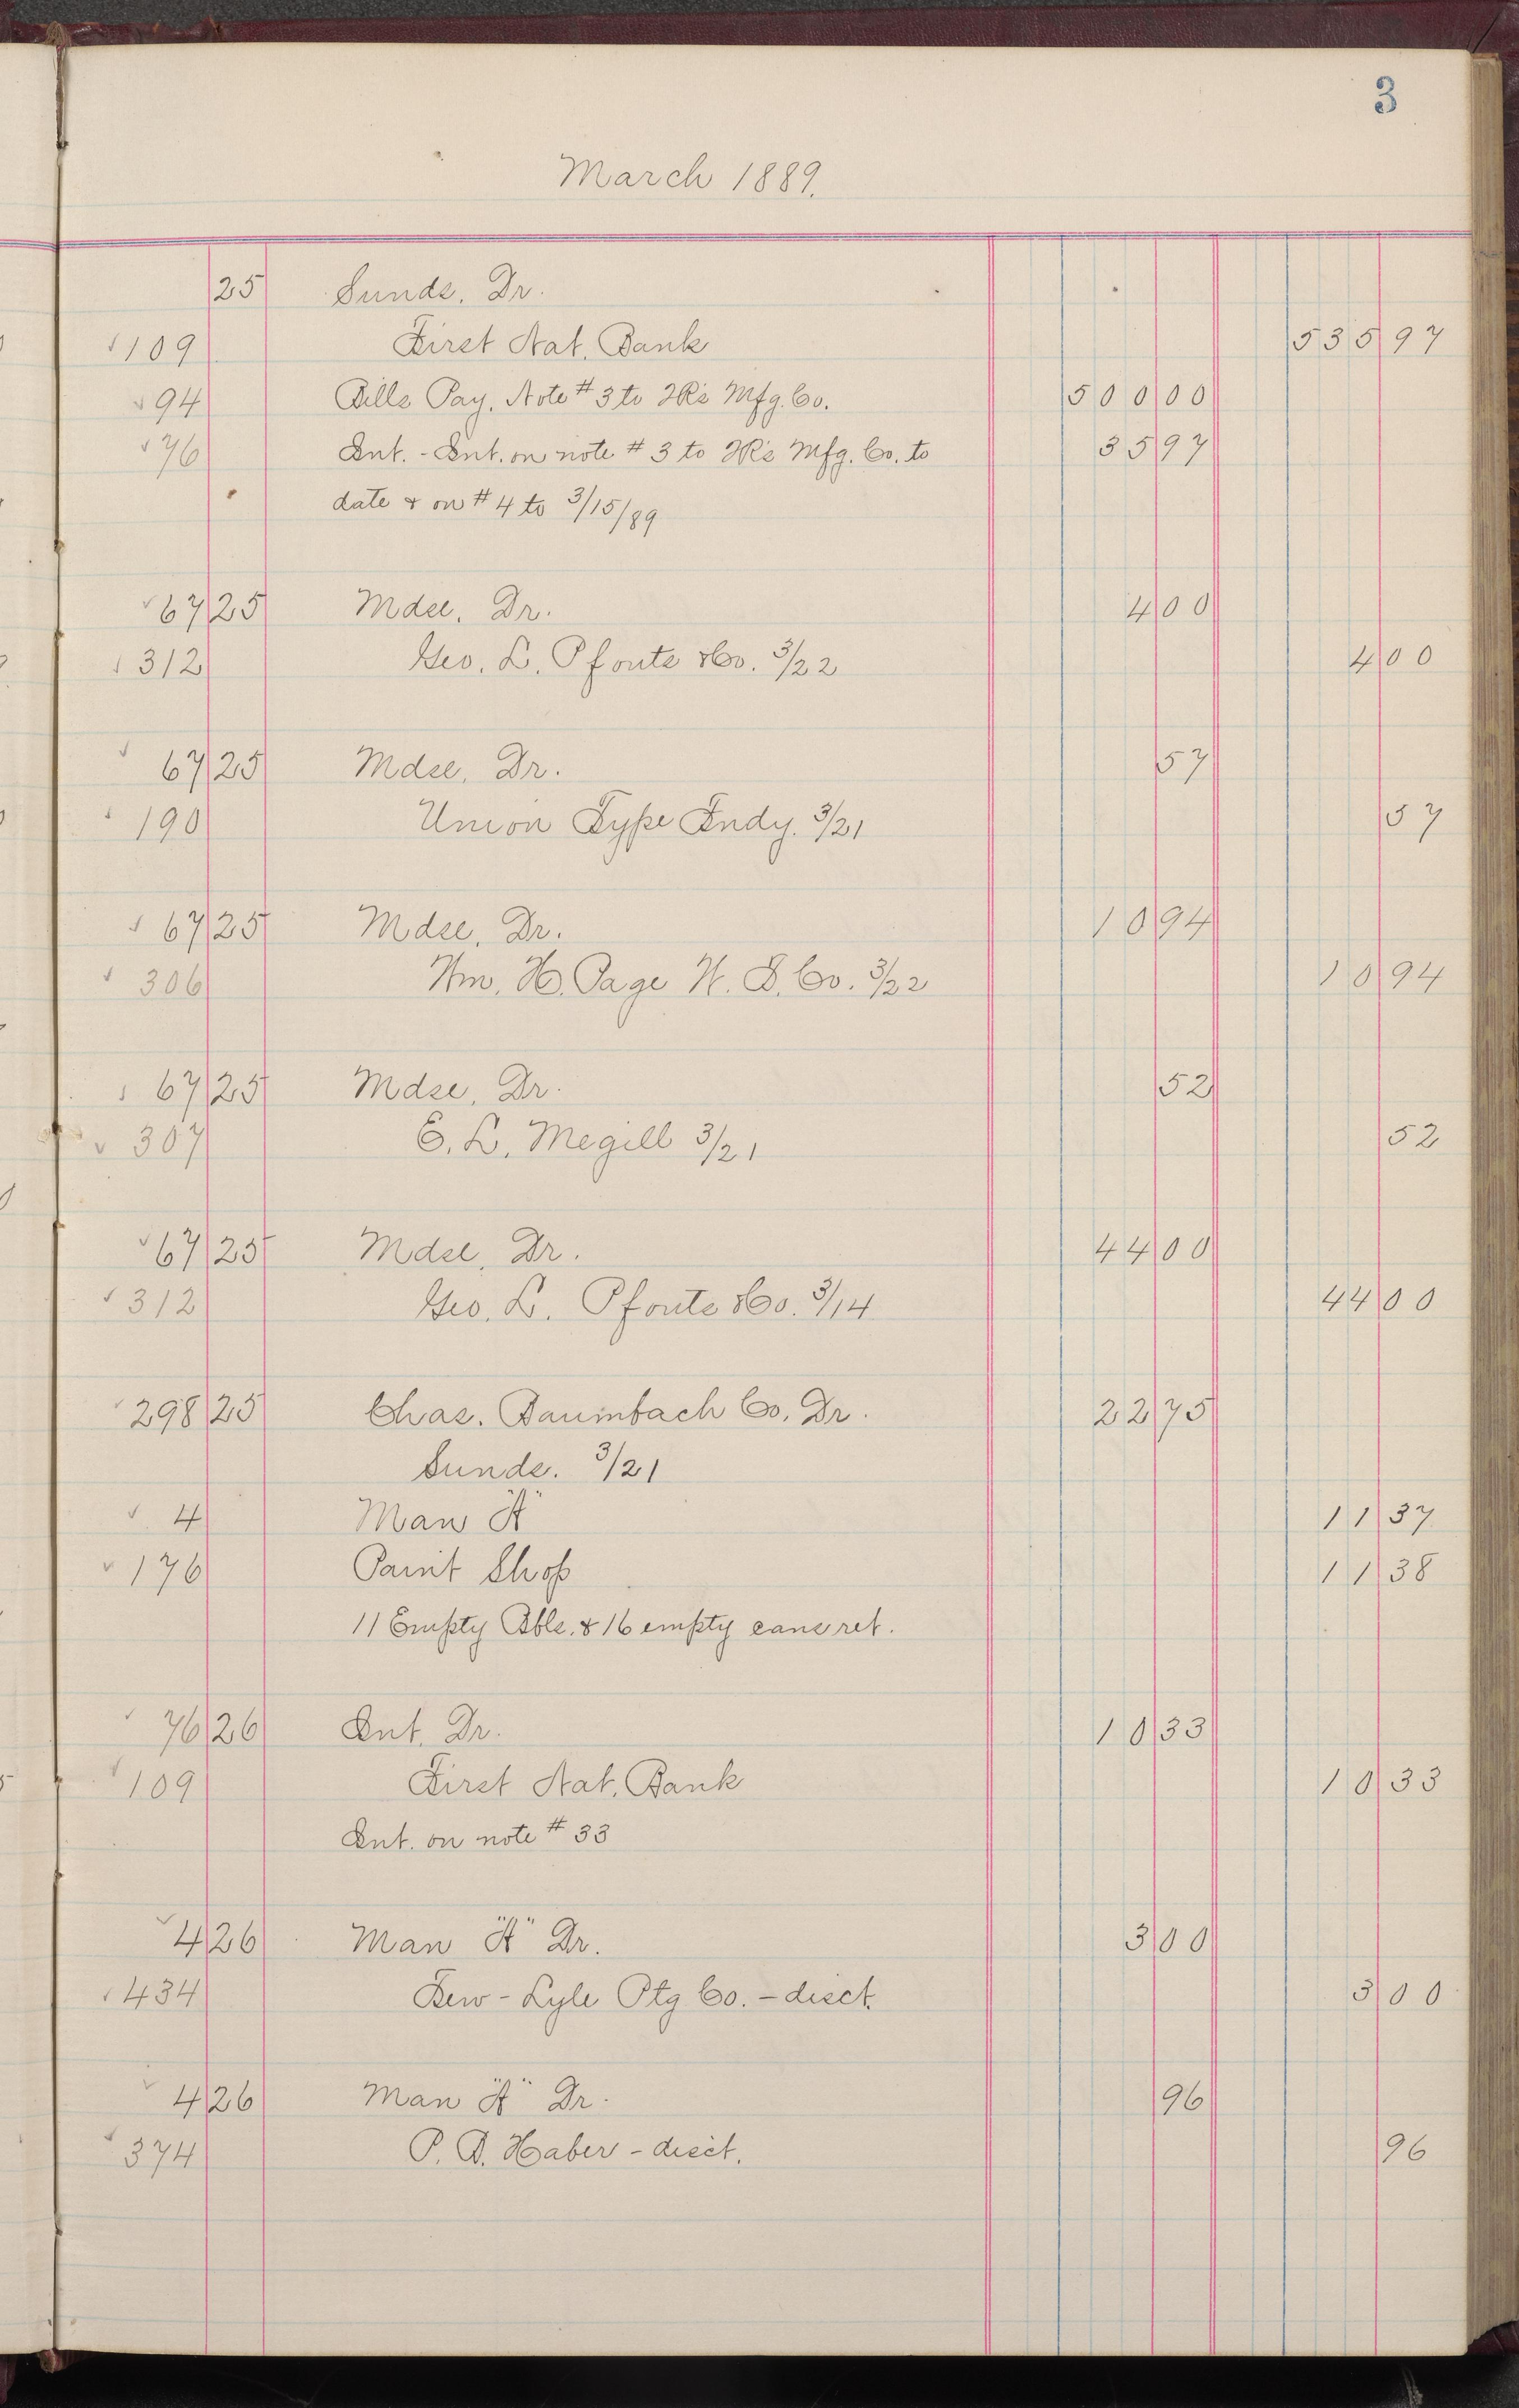 3
March 1889.
25 Sunds. Dr.
109 First Nat. Bank 535 97
94 Bills Pay. Note #3 to Mfg. Co. 500 00
76 Int. - Int. on note #3 to Mfg. Co. to 35 97
date & on #4 to 3/15/89
67 25 Mdse. Dr. 4 00
312 Geo. L. Pfouts & Co. 3/22 4 00
67 25 Mdse. Dr. 57
190 Union Type Fndy. 3/21 57
67 25 Mdse. Dr. 10 94
306 Wm. H. Page W. T. Co. 3/22 10 94
67 25 Mdse. Dr. 52
307 E. L. Megill 3/21 52
67 25 Mdse. Dr. 44 00
312 Geo. L. Pfouts & Co. 3/14 44 00
298 25 Chas. Baumbach Co. Dr. 22 75
Sunds. 3/21
4 Man "A" 11 37
176 Paint Shop 11 38
11 Empty Bbls. & 16 empty cans ret.
76 26 Int. Dr. 10 33
109 First Nat. Bank 10 33
Int. on note #33
4 26 Man "A" Dr. 3 00
434 Lyle Ptg Co. - disct. 3 00
4 26 Man "A" Dr. 96
374 P. B. Haber - disct. 96